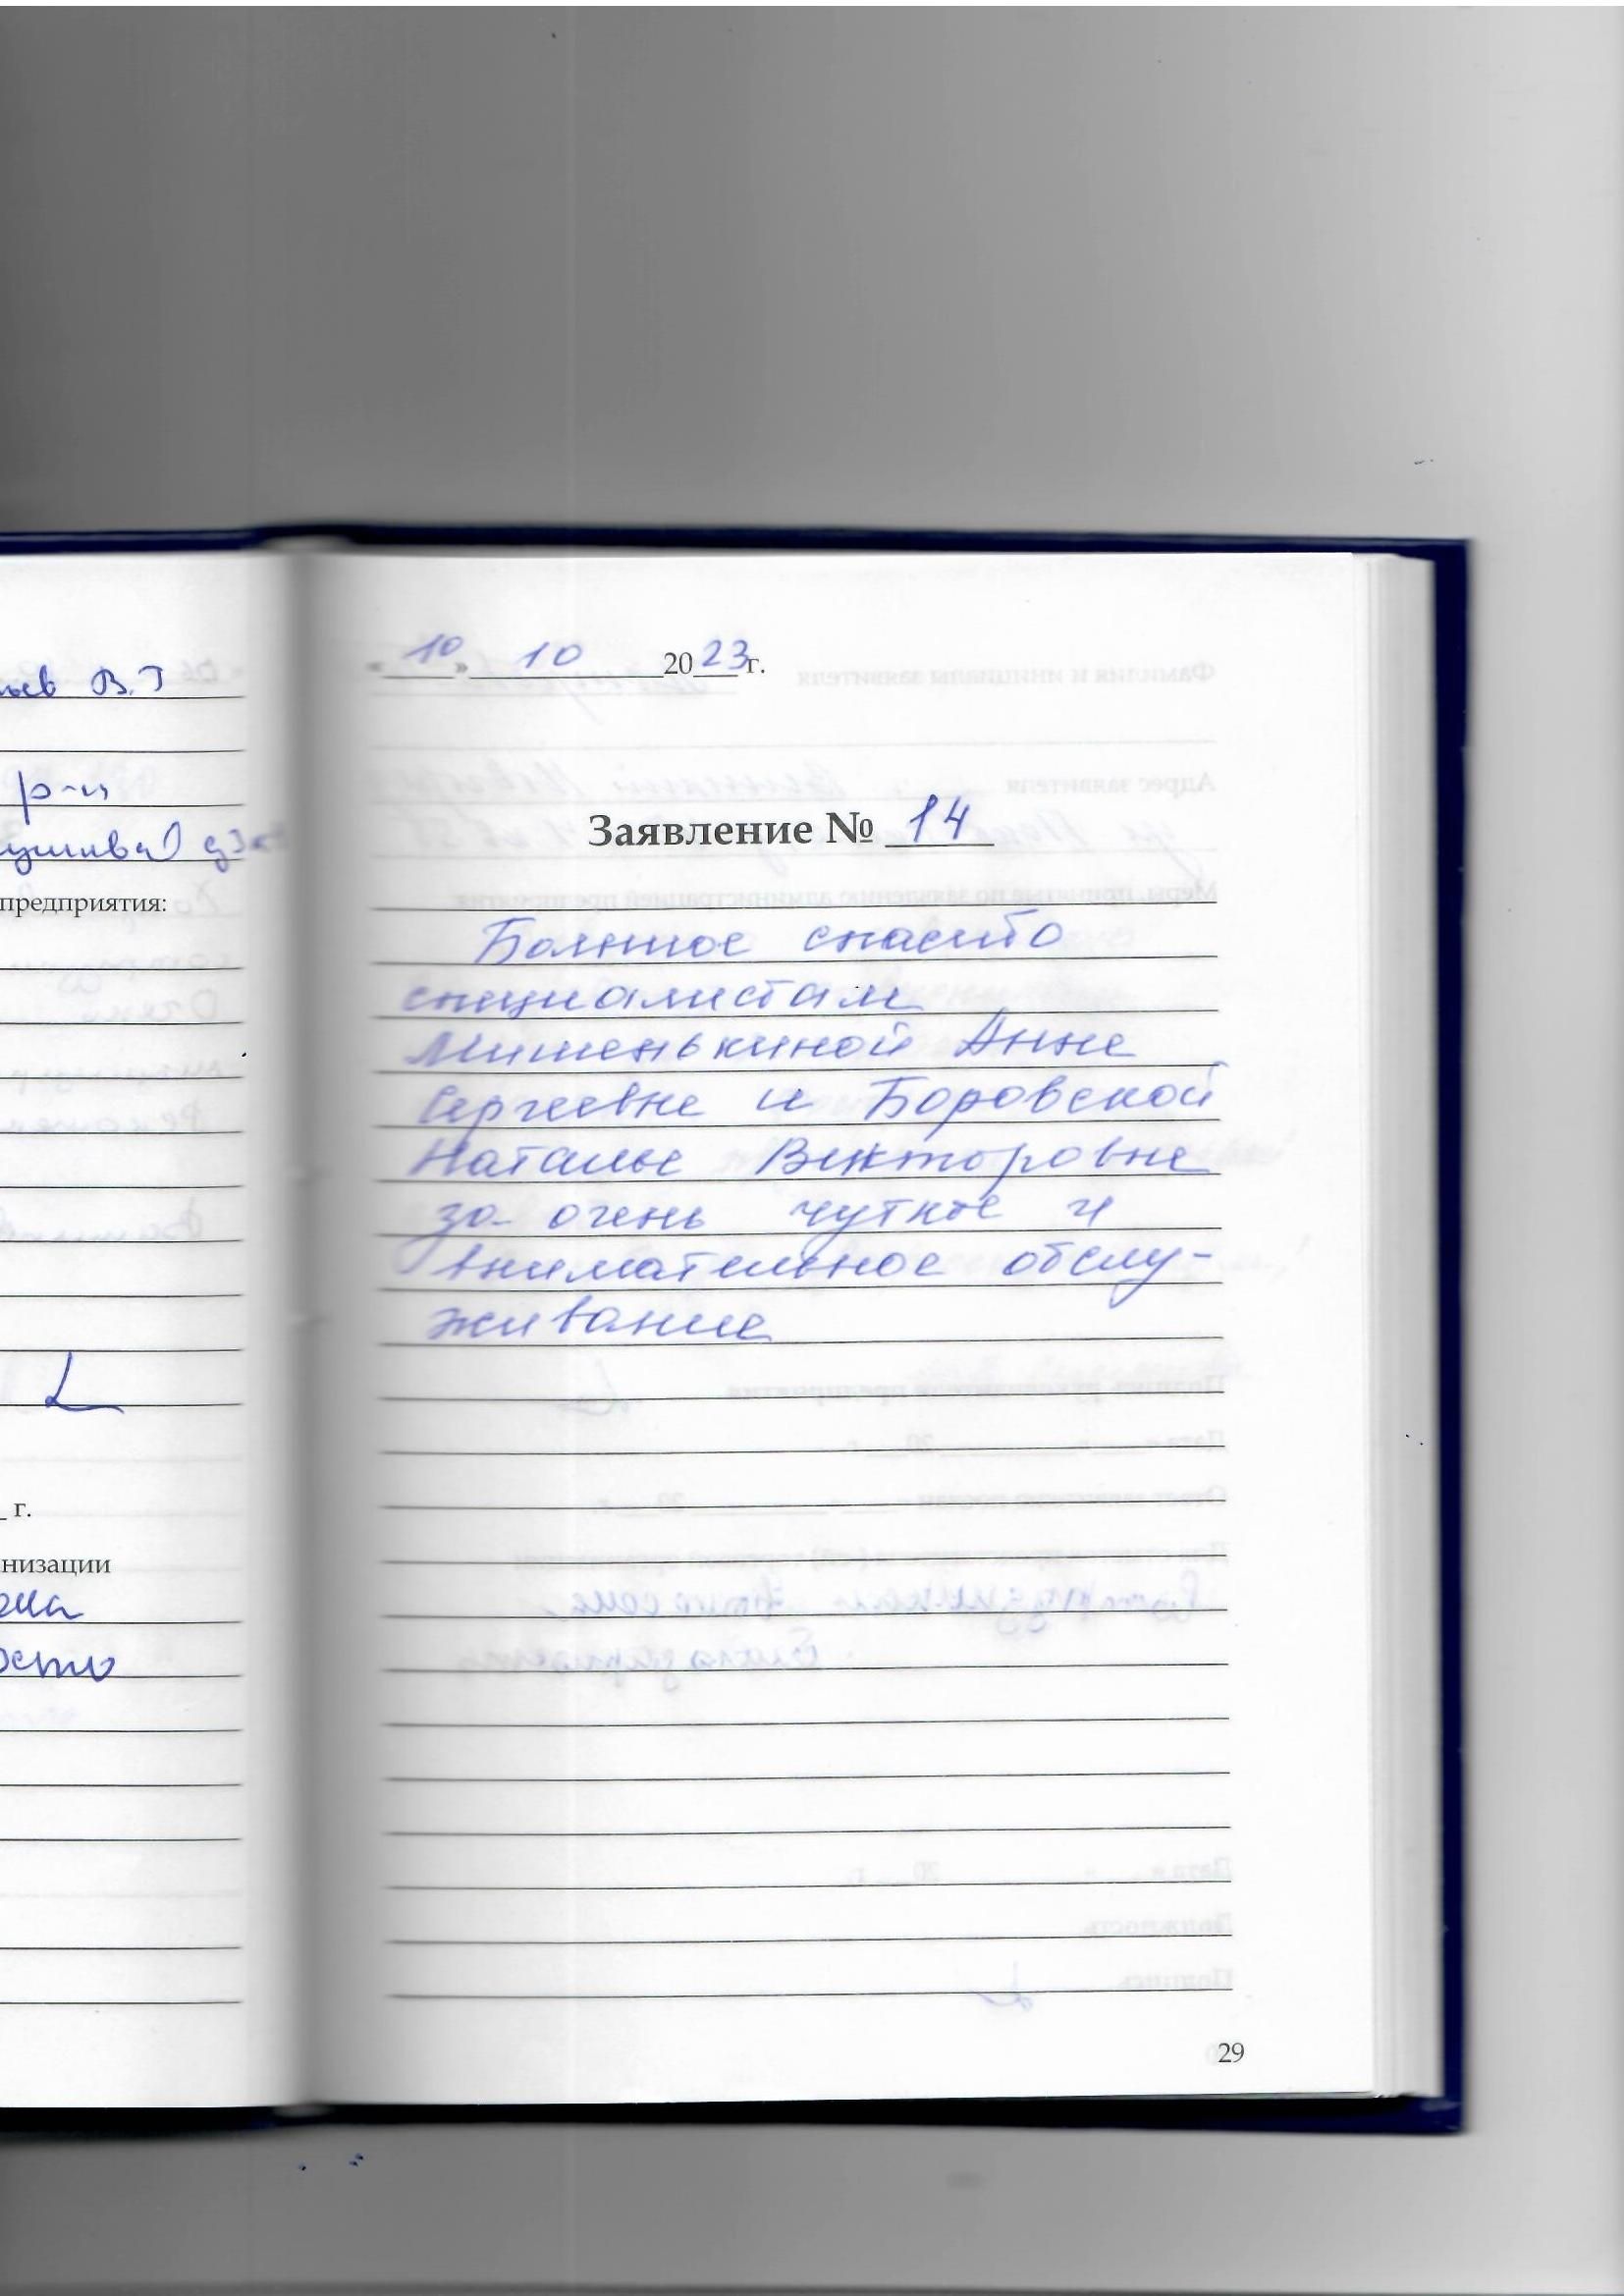 В.Г
р-н
предприятия:
г.
низации
«10» 10 2023г.
Заявление № 14
Большое спасибо
специалистам
Мишенькиной Анне
Сергеевне и Боровской
Наталье Викторовне
за очень чуткое и
внимательное обслу-
живание
29